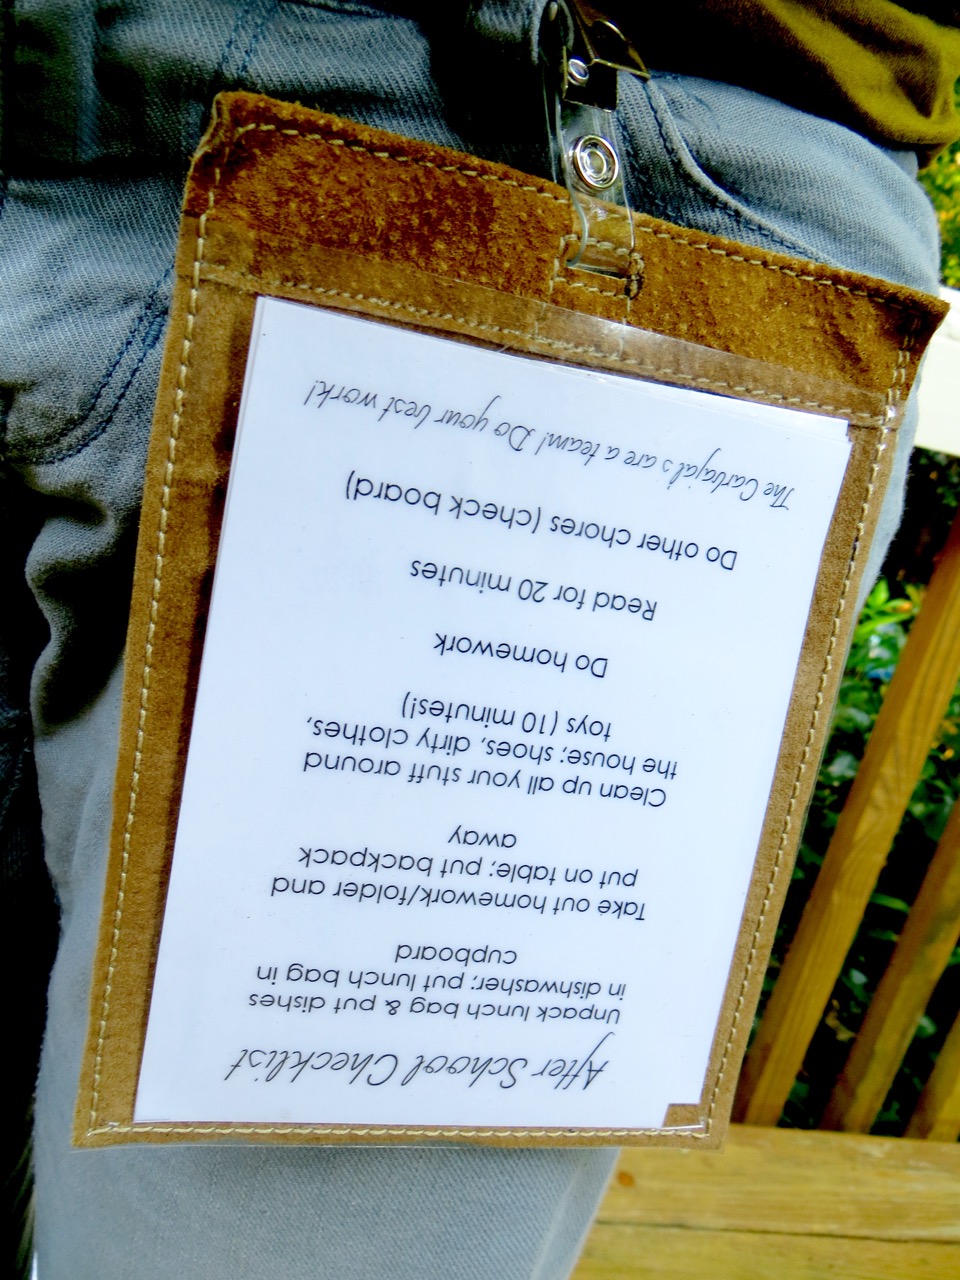 After School Checklist
Unpack lunch bag & put dishes
in dishwasher; put lunch bag in
cupboard
Take out homework/folder and
put on table; put backpack
away
Clean up all your stuff around
the house: shoes, dirty clothes,
toys (10 minutes!)
Do homework
Read for 20 minutes
Do other chores (check board)
The Carbajal's are a team! Do your best work!